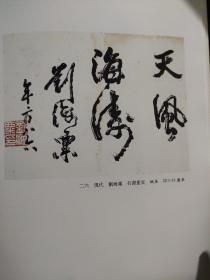 天風
海濤
劉海粟
年方八六
二六 現代 劉海粟 紙本